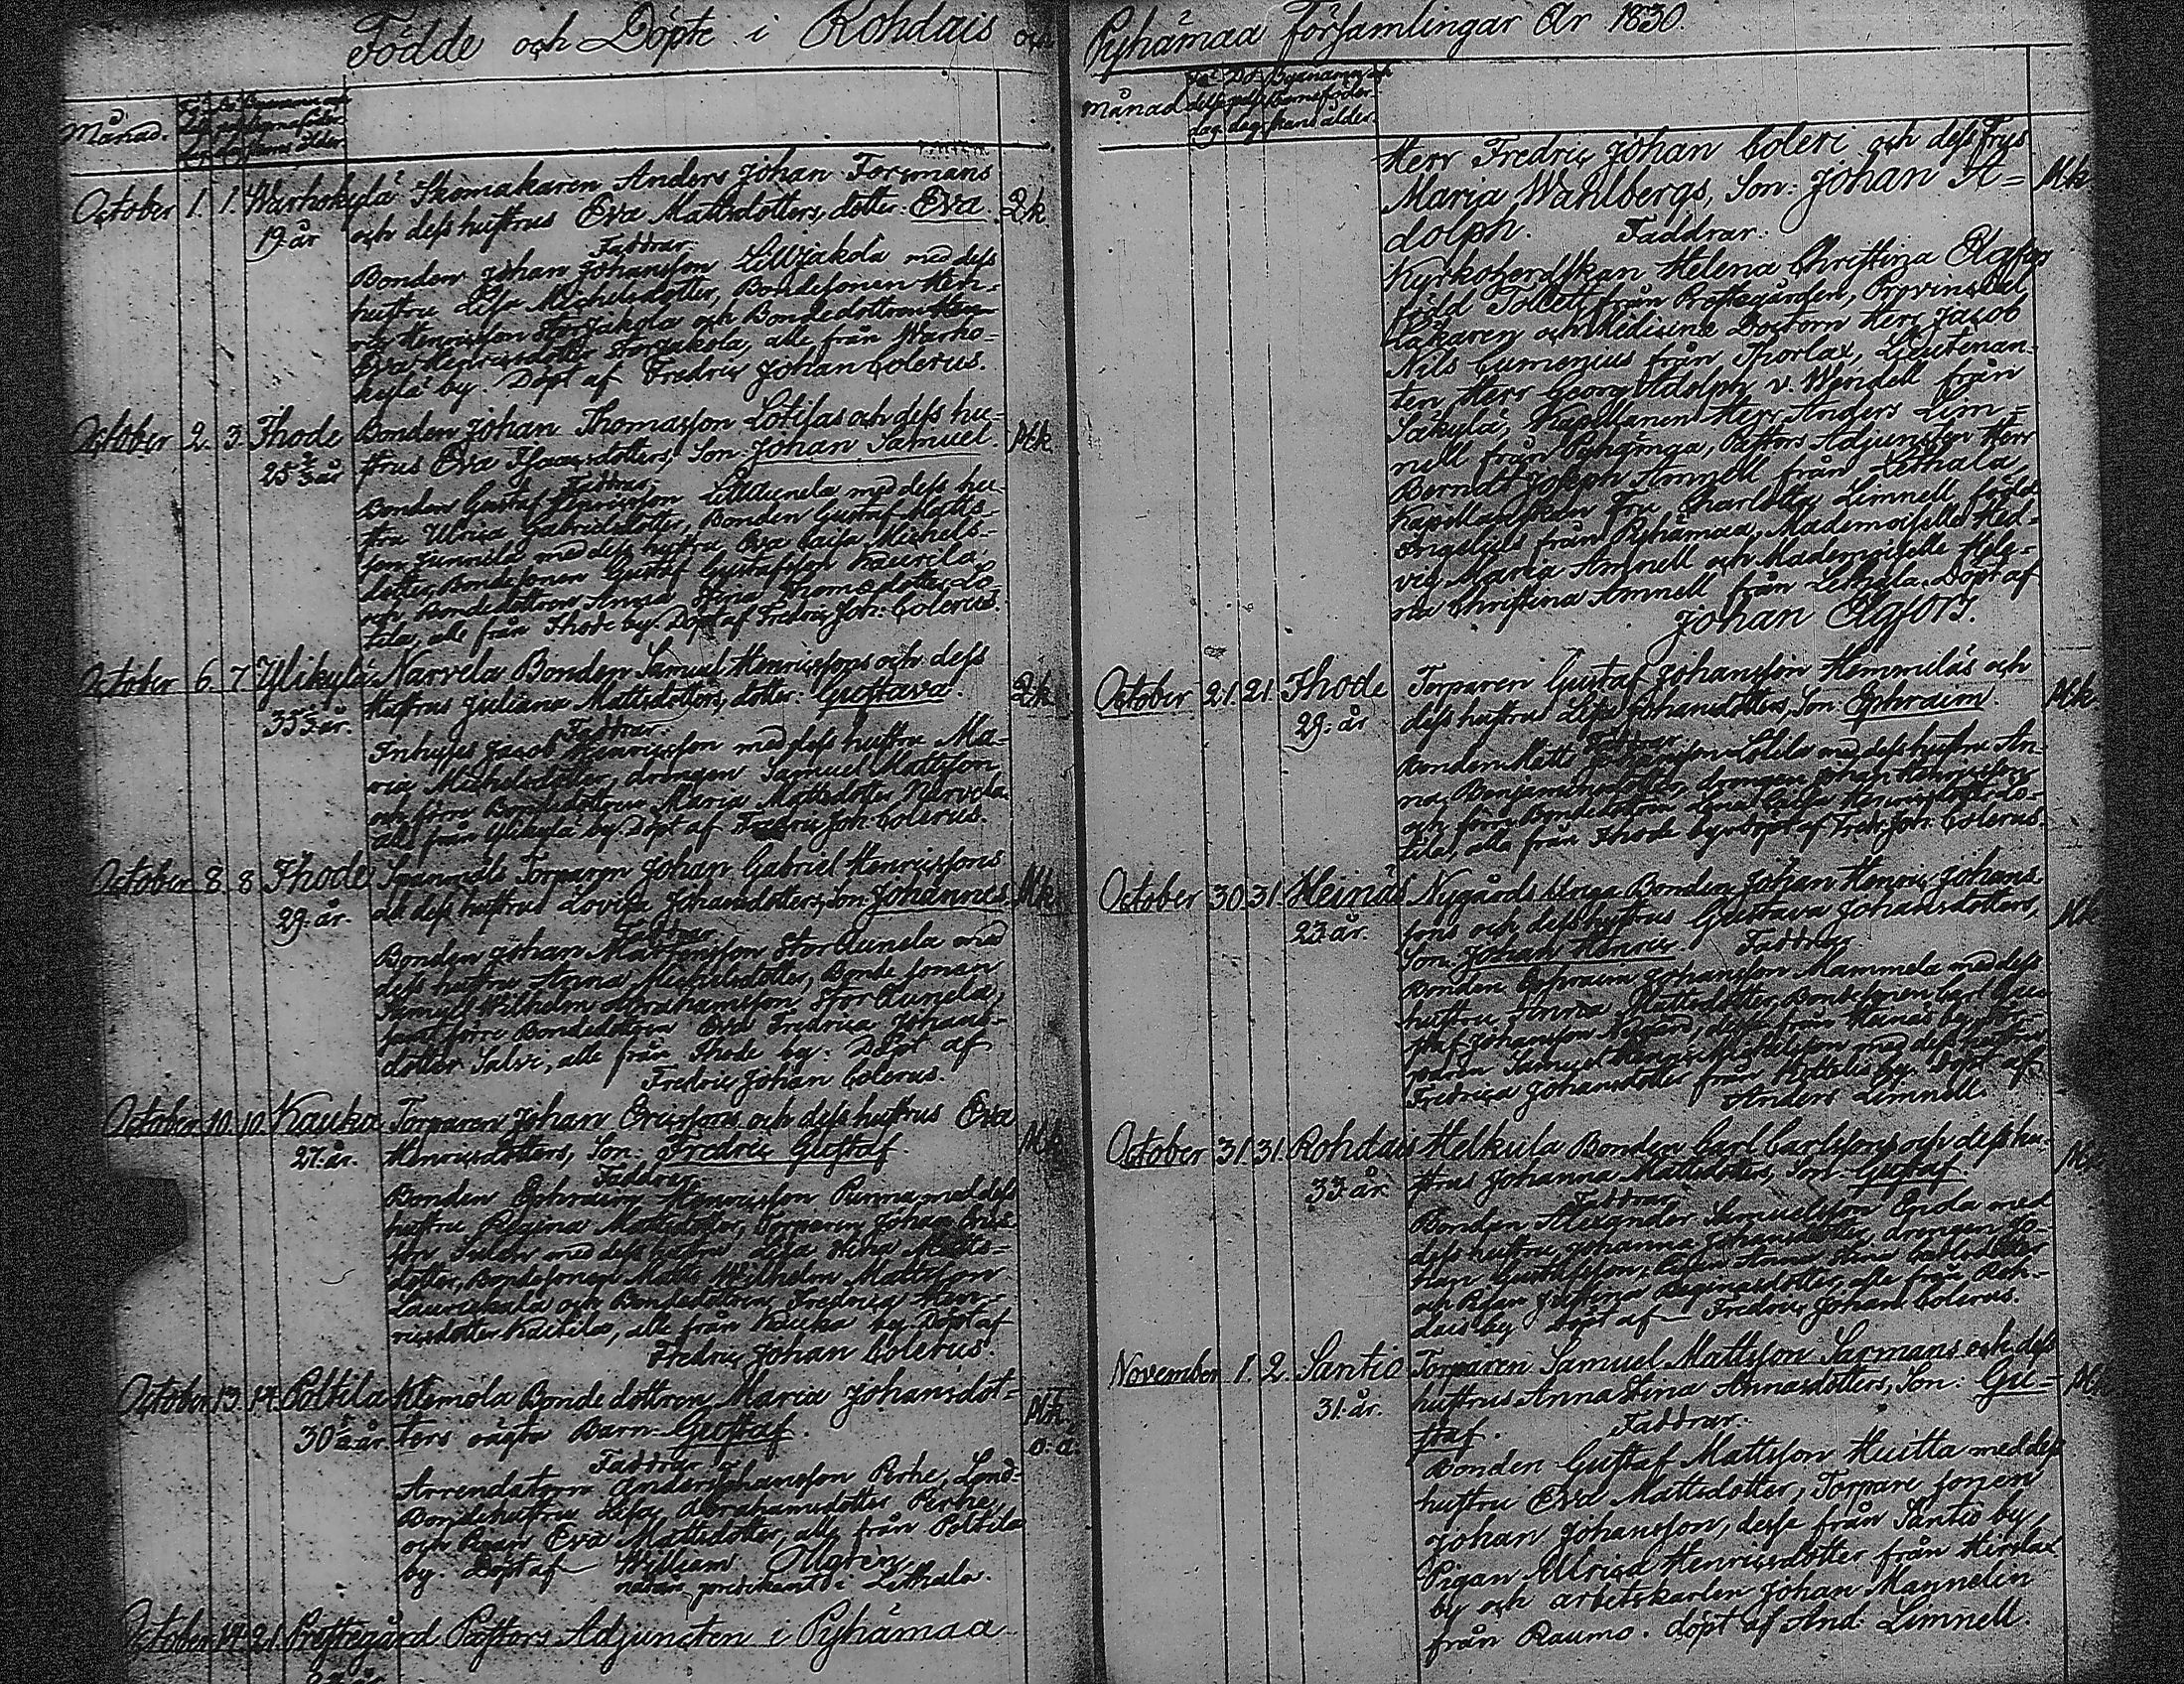 Födde och Döpte i Rohdais och
Månad.
October 1. 1. Warhokylä Skomakaren Anders Johan Forsmans
19 år och dess hustrus Eva Mattsdotters, dotter: Eva. Qk.
Faddrar:
Bonden Johan Johansson Lilljakola med dess
hustru Lisa Michelsdotter, Bondesonen Hen-
ric Henricsson Storjakola och Bondedottren
Eva Henricsdotter Storjakola, alle från Warho-
kylä by. Döpt af Fredric Johan Colerus.
October 2. 3. Ihode Bonden Johan Thomasson Lotilas och dess hu-
25 år strus Eva Isaacsdotters, Son Johan Samuel. Mk.
Faddrar:
Bonden Gustaf Henricsson Lill Aunela med dess hu-
stru Ulrica Gabrielsdotter, Bonden Gustaf Matts-
son med dess hustru Eva Caisa Michels-
dotter, Bondesonen Gustaf Gustafsson
och Bondedottren Anna Stina Thomasdotter Lo-
tila, alle från Ihode by. Döpt af Fredric Joh: Colerus.
October 6. 7. Ylikylä Narvela Bonden Samuel Henricssons och dess
35 år. Hustrus Juliana Mattsdotters, dotter: Gustava. Qk.
Faddrar:
Inhyses Jacob Henricsson med dess hustru Ma-
ria Michelsdotter, drängen Samuel Mattsson
och förre Bondedottren Maria Mattsdotter Narvela
alle från Ylikylä by. Döpt af Fredric Joh: Colerus.
October 8. 8. Ihode Torparen Johan Gabriel Henricssons
29. år. och dess hustrus Lovisa Johansdotters, Son Johannes. Mk.
Faddrar.
Bonden Johan Mattsson Stor Aunela med
dess hustru Anna Michelsdotter, Bonde sonen
Samuel Wilhelm Abrahamsson Stor Aunela,
samt förre Bondedottren Eva Fredrica Johans-
dotter Salvi, alle från Ihode by. Döpt af
Fredric Johan Colerus.
October 10. 10. Kauka Torparen Johan Ericssons och dess hustrus Eva
27. år. Henricsdotters, Son: Fredric Gustaf. Mk.
Faddrar.
Bonden Ephraim Henricsson Punna med dess
hustru Regina Mattsdotter, Torparen Johan Erics-
son med dess hustru Lisa Stina Matts-
dotter, Bondesonen Matts Wilhelm Mattsson
Laurikkala och Bondedottren Fredrica Hen-
ricsdotter alle från Kauka by. Döpt af
Fredric Johan Colerus
October 13. 14. Poltila Klemola Bonde dottren Maria Johansdot-
30 år. ters oägta Barn Gustaf. Mk. o. ä.
Faddrar
Arrendatorn Anders Johansson Perhe,
Bondehustru Lisa Abrahamsdotter Perhe,
och Pigan Eva Mattsdotter, alle från Poltila
by. Döpt af William Ollgren
predikant i Lethala.
October 14. 21. Prestegård Pastors Adjuncten i Pyhämaa
Pyhämaa Församlingar År 1830.
Månad
Herr Fredric Johan Coleri och dess Frus
Maria Wahlbergs, Son: Johan A- Mk.
dolph. Faddrar:
Kyrkoherdskan Helena Christina Elgfors
född Tollet från Prestegården, Provincial
Läkaren och Medicine Doctorn Herr Jacob
Nils Cumenius från Thorlax, Lieutenan-
ten Herr Georg Adolph v. Wendell från
Säkylä, Kapellanen Herr Anders Lim-
nell från Pyhämaa, Pastors Adjuncten Herr
Berndt Joseph Amnell från Lethala,
Kapellanskan Fru Charlotta Limnell född
från Pyhämaa, Mademoiselle Hed-
vig Maria Amnell och Mademoiselle Hele-
na Christina Amnell från Lethala. Döpt af
Johan Elgfors.
October 21. 21. Ihode Torparen Gustaf Johansson Hemmiläs och
29. år dess hustrus Lisa Johansdotters, Son Ephraim. Mk.
Faddrar.
Bonden Matts Johansson med dess hustru An-
na Benjaminsdotter, drengen Johan Henricsson
och förre Bondedottren Caisa Henricsdotter Lo-
tila, alla från Ihode by. Döpt af Fredr. Joh. Colerus.
October 30. 31. Heinäs Nygårds Unga Bonden Johan Henric Johans-
23. år. sons och dess hustrus Gustava Johansdotters,
Son: Johan Henric. Faddrar Mk
Bonden Ephraim Johansson Mammela med dess
hustru Mattsdotter, Bondesonen Carl Gu-
staf Johansson Nygård, desse från Heinäs by,
Samuel Henric Michelsson med dess hustru
Fredrica Johansdotter från by. Döpt af
Anders Limnell.
October 31. 31. Rohdais Helkula Bonden Carl Carlssons och dess hu-
33. år. strus Johanna Mattsdotters, Son. Gustaf. Mk
Faddrar
Bonden Alexander Samuelsson med
dess hustru Johanna Johansdotter, drengen Jo-
han Gustafsson, Anna Stina Carlsdotter
och Pigan Justina alle från Roh-
dais by Döpt af Fredric Johan Colerus.
November 1. 2. Santio Torparen Samuel Mattsson Sarmans och dess
31. år. hustrus Anna Stina Annasdotters, Son: Gu- Mk.
staf. Faddrar.
Bonden Gustaf Mattsson Huitta med dess
hustru Eva Mattsdotter, Torpare sonen
Johan Johansson, desse från Santio by,
Pigan Ulrica Henricsdotter från Hirslax
by och arbetskarlen Johan Mannelin
från Raumo. Döpt af And: Limnell.